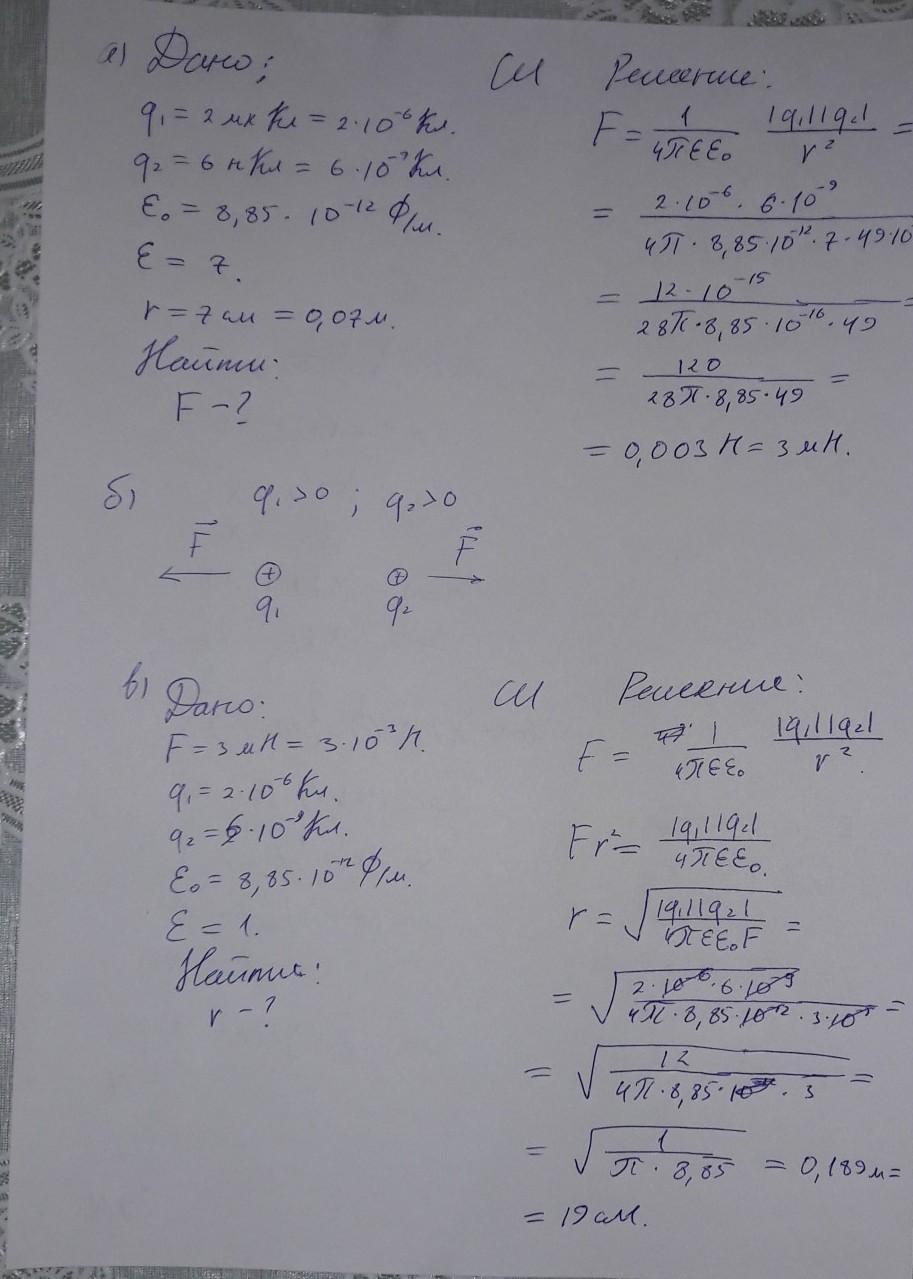 а) Дано:
СИ Решение:
q₁ = 2 мкКл = 2·10⁻⁶ Кл.
q₂ = 6 нКл = 6·10⁻⁹ Кл.
ε₀ = 8,85·10⁻¹² Ф/м.
ε = 7.
r = 7 см = 0,07 м.
Найти:
F – ?
F = 1/4πεε₀ |q₁||q₂|/r² =
= 2·10⁻⁶·6·10⁻⁹/4π·8,85·10⁻¹²·7·49·10
= 12·10⁻¹⁵/28π·8,85·10⁻¹⁶·49 =
= 120/28π·8,85·49 =
= 0,003 Н = 3 мН.
б) q₁ > 0 ; q₂ > 0
F F
+ +
q₁ q₂
в) Дано:
СИ Решение:
F = 3 мН = 3·10⁻³ Н.
q₁ = 2·10⁻⁶ Кл.
q₂ = 6·10⁻⁹ Кл.
ε₀ = 8,85·10⁻¹² Ф/м.
ε = 1.
Найти:
r – ?
F = 1/4πεε₀ |q₁||q₂|/r².
Fr² = |q₁||q₂|/4πεε₀.
r = √|q₁||q₂|/4πεε₀F =
= √2·10⁻⁶·6·10⁻⁹/4π·8,85·10⁻¹²·3·10⁻³ =
= √12/4π·8,85·3 =
= √1/π·8,85 = 0,189 м =
= 19 см.